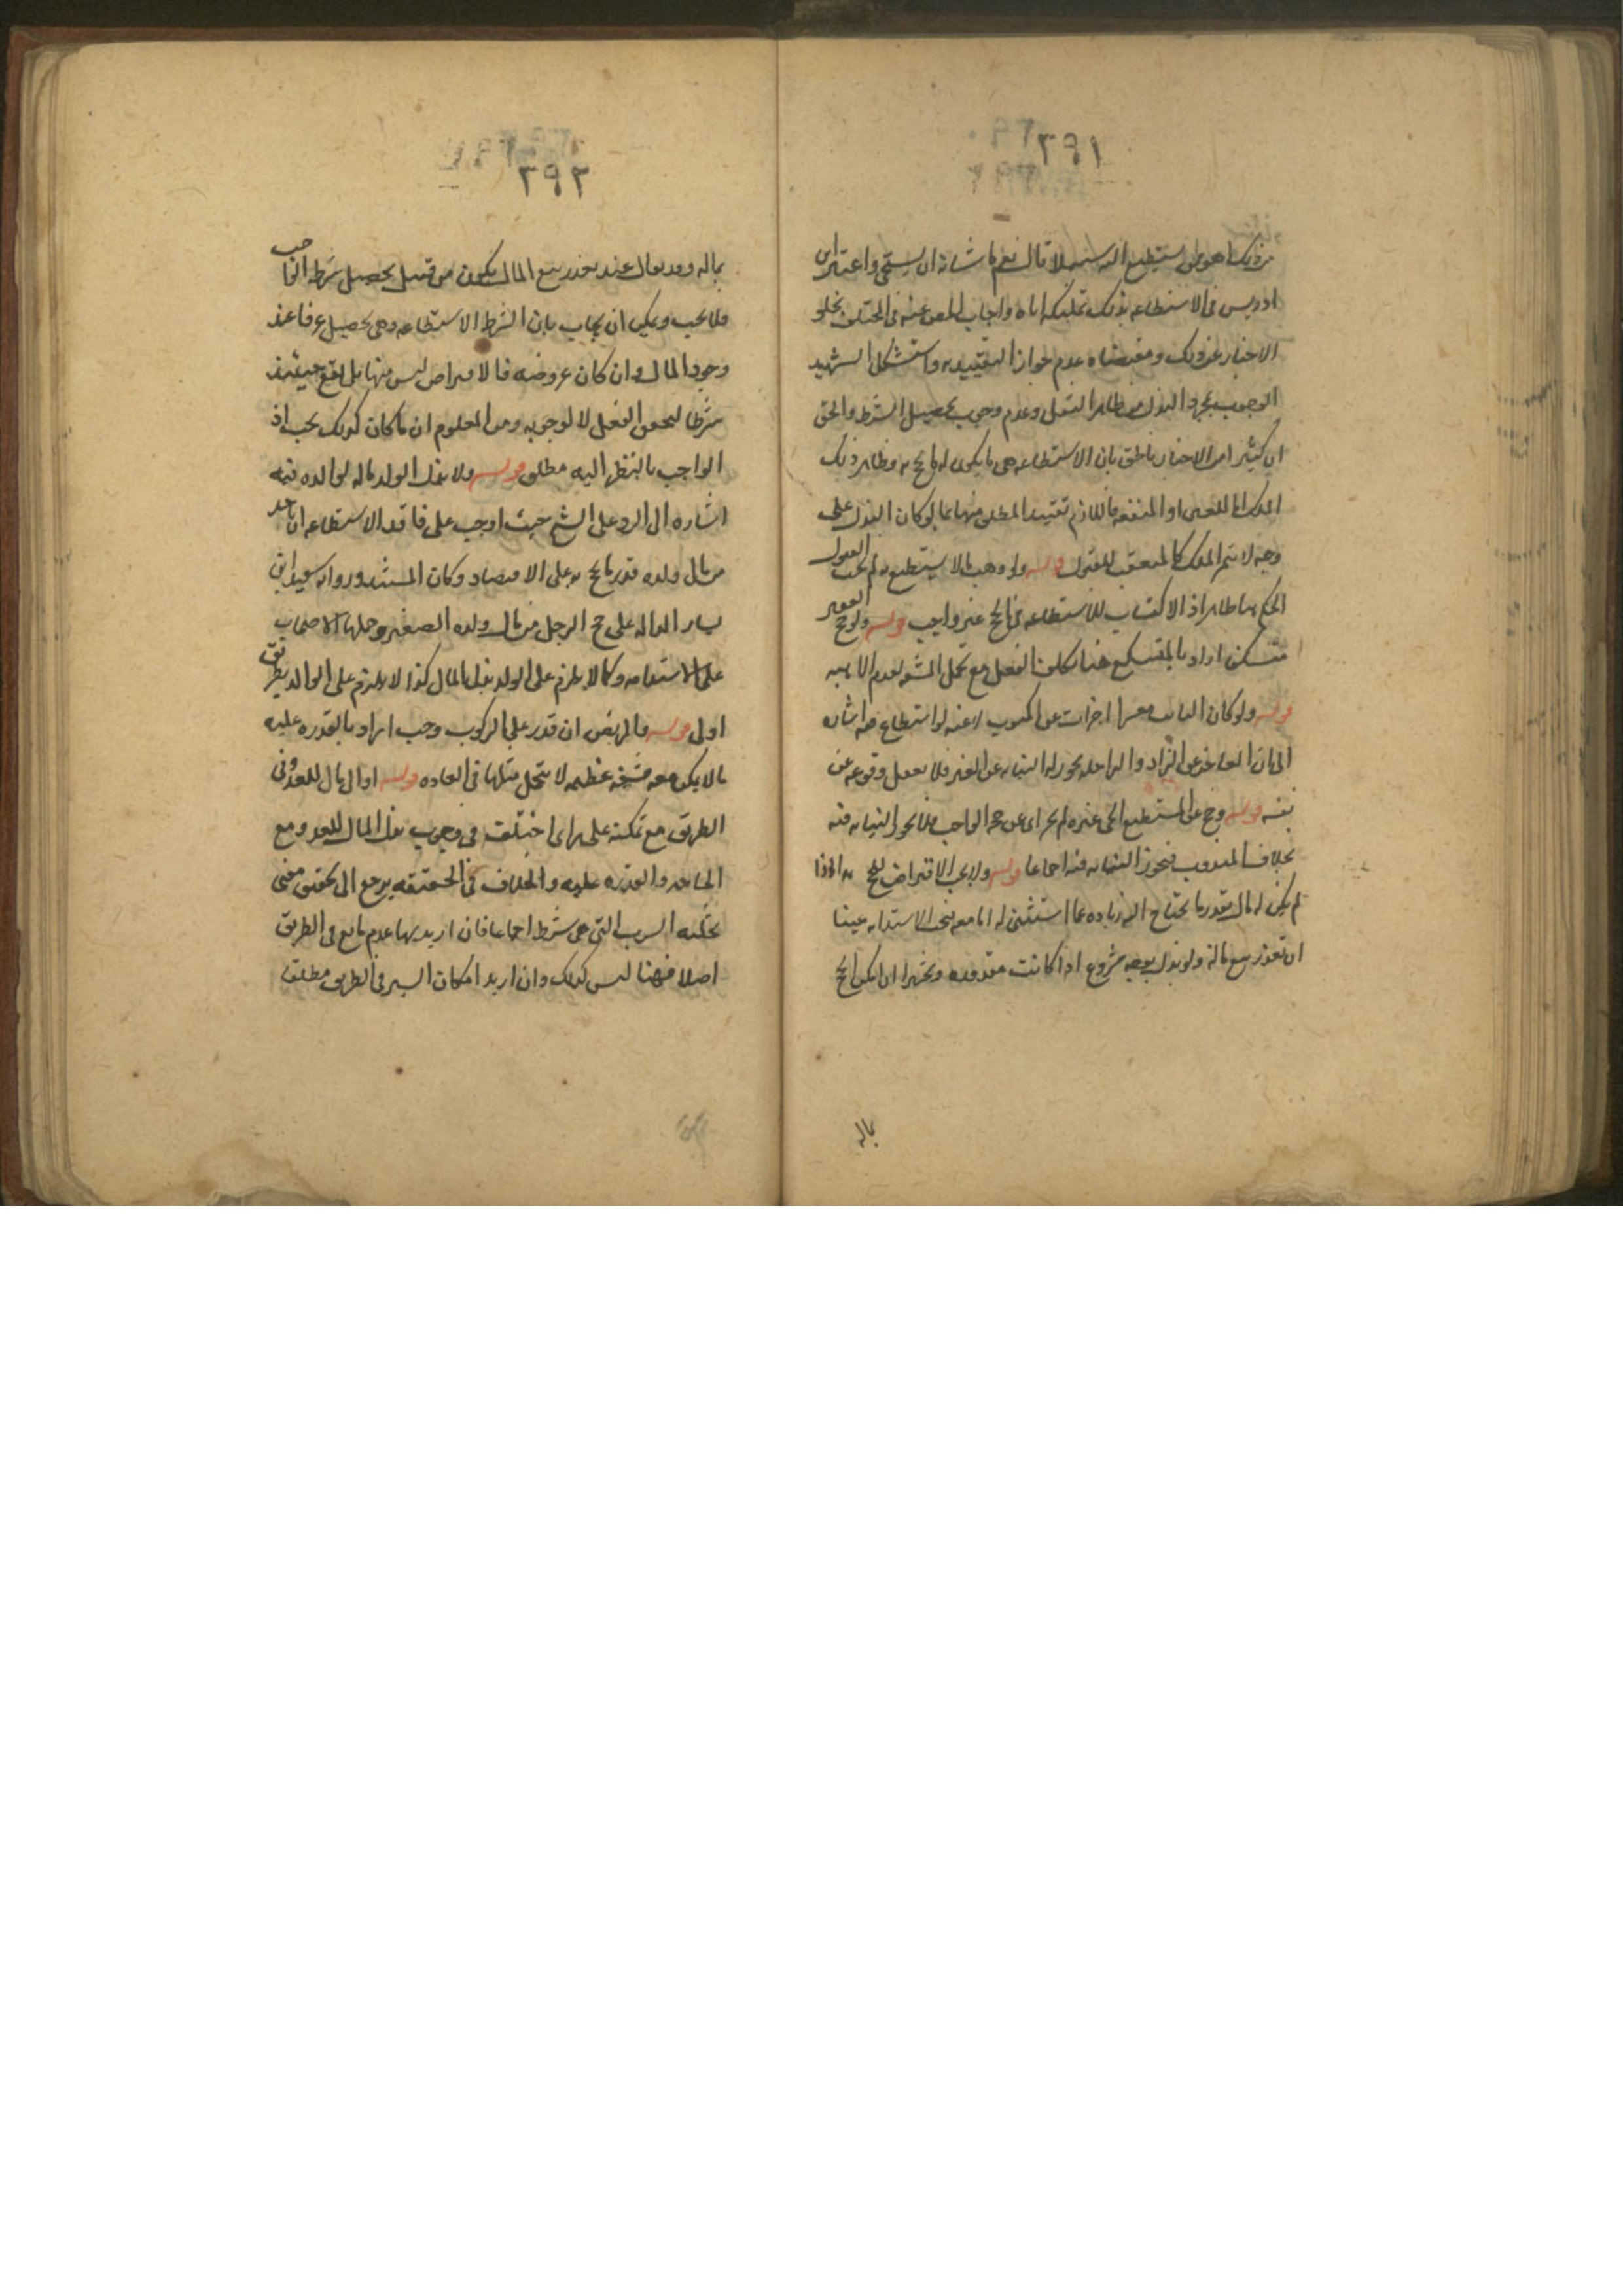 ٢٩١
من ذلك اهو ممن يستطيع اليه سبيلا قال نعم ما شانه ان يستحيى واعتبر ابن
ادريس في الاستطاعه بذلك تمليكه اياه واجاب المص عنه في المختلف بخلو
الاخبار عن ذلك ومقتضاه عدم جواز التقييد به واستشكل الشهيد
الوجوب بمجرد البذل من ظاهر النقل وعدم وجوب تحصيل الشرط والحق
ان كثيرا من الاخبار ناطق بان الاستطاعه هى ما يكون له ما يحج به وظاهر ذلك
الملك اما للعين او المنفعه فاللازم تقييد المطلق منها بما لو كان البذل على
وجه لازم الملك كالمتعقب للقبول قوله ولو وهب مالا يستطيع به لم يجب القبول
الحكم بها ظاهر اذ الاكتساب للاستطاعه في الحج غير واجب قوله ولو حج الفقير
متسكعا اراد بالمتسكع هنا تكلف الفعل مع تحمل المشقه لعدم الاهبه
قوله ولو كان النايب معسرا اجزأت عن المنوب لا عنه لو استطاع فيه اشاره
الى ان العاجز عن الزاد والراحله يجوز له النيابه عن الغير فلا يعقل وقوعه عن
نفسه قوله وحج عن المستطيع الحى غيره لم يجز اى عن حجه الواجب فلا يجوز النيابه فيه
بخلاف المندوب فتجوز النيابه فيه اجماعا قوله ولا يجب الاقتراض للحج به الا اذا
لم يكن له مال بقدر ما يحتاج اليه زياده عما استثنى له اما معه فتجب الاستدانه عينا
ان تعذر بيع ماله ولو بذل بوجه مشروع اذا كانت مقدوره وتخيرا ان امكن الحج
بماله
٢٩٢
بماله وقد يقال عند تعذر بيع المال يكون من قبيل تحصيل شرط الواجب
فلا يجب ويمكن ان يجاب بان الشرط الاستطاعه وهى تحصيل عرفا عند
وجود المال وان كان عروضه فالاقتراض ليس منها بل يقع حينئذ
شرطا لتحقق الفعل لا لوجوبه ومن المعلوم ان ما كان كذلك يجب اذ
الواجب بالنظر اليه مطلق قوله ولا بذل الولد ماله لوالده فيه
اشاره الى الرد على الشيخ حيث اوجب على فاقد الاستطاعه ان ياخذ
من مال ولده قدر ما يحج به على الاقتصاد وكان المستند روايه سعيد ابن
يسار الداله على حج الرجل من مال ولده الصغير وحملها الاصحاب
على الاستدانه وكما لا يلزم على الولد بذل المال كذا لا يلزم على الوالد بطريق
اولى قوله والمريض ان قدر على الركوب وجب اراد بالقدره عليه
ما لا يكون معه مشقه عظيمه لا تتحمل مثلها في العاده قوله او الى مال للعدو في
الطريق مع تمكنه على راى اختلف في وجوب بذل المال للعدو مع
الحاجه والقدره عليه والخلاف في الحقيقه يرجع الى تحقق معنى
تخليه السرب التى هى شرط اجماعا فان اريد بها عدم مانع في الطريق
اصلا فهنا ليس كذلك وان اريد امكان السير في الطريق مطلقا